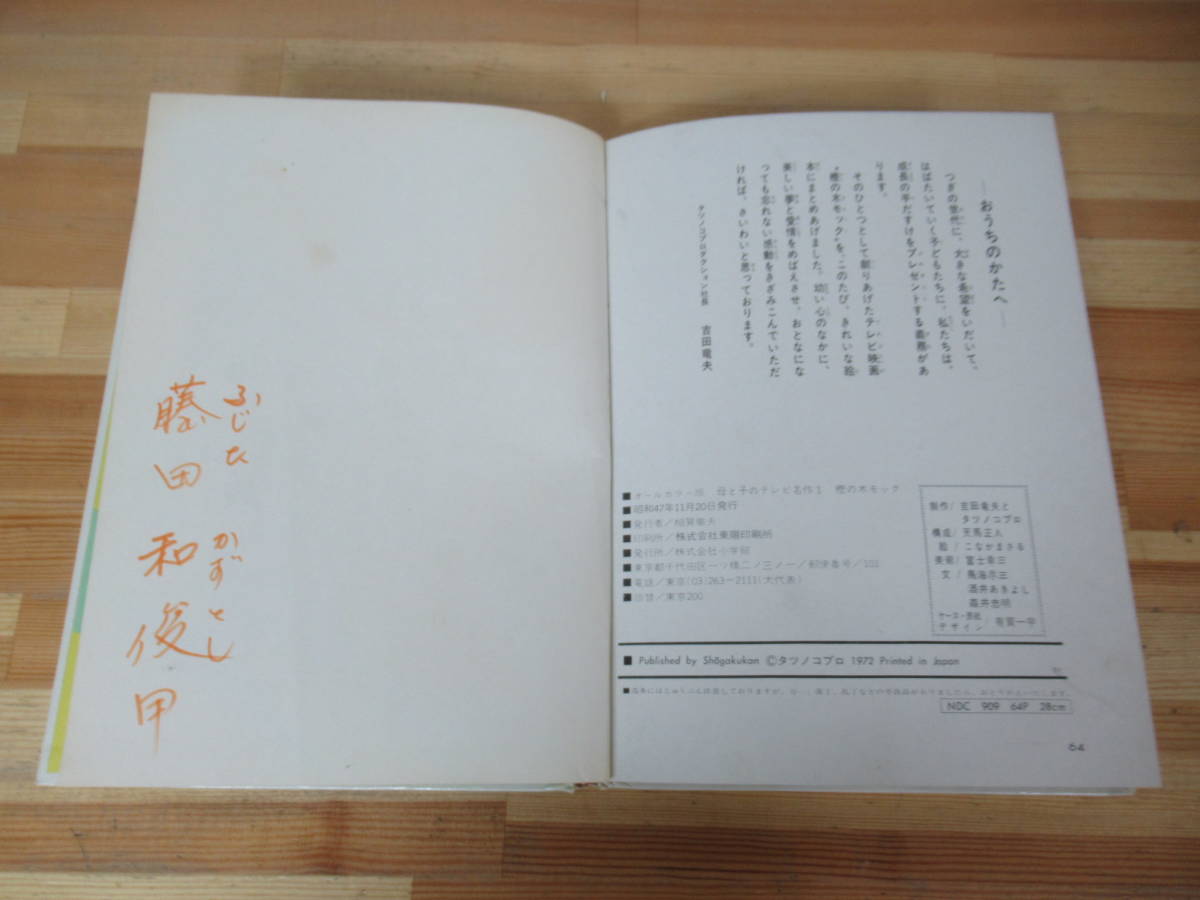 ―おうちのかたへ―
つぎの世代に、大きな希望をいだいて、
はばたいていく子どもたちに、私たちは、
成長の手だすけをプレゼントする義務があ
ります。
そのひとつとして創りあげたテレビ映画
"樫の木モック"を、このたび、きれいな絵
本にまとめあげました。幼い心のなかに、
美しい夢と愛情をめばえさせ、おとなにな
っても忘れない感動をきざみこんでいただ
ければ、さいわいと思っております。
タツノコプロダクション社長 吉田竜夫
■オールカラー版 母と子のテレビ名作1 樫の木モック
■昭和47年11月20日発行
■発行者/相賀徹夫
■印刷所/株式会社東陽印刷所
■発行所/株式会社小学館
■東京都千代田区一ツ橋二ノ三ノ一/郵便番号/101
■電話/東京(03)263-2111(大代表)
■振替/東京200
制作/吉田竜夫と
タツノコプロ
構成/天馬正人
絵/こなかまさる
美術/富士幸三
文/鳥海尽三
酒井あきよし
森井忠明
ケース・表紙
デザイン/有賀一宇
■ Published by Shōgakukan ©タツノコプロ 1972 Printed in Japan
NDC 909 64P 28cm
64
ふじた かずとし
藤田 和俊 甲